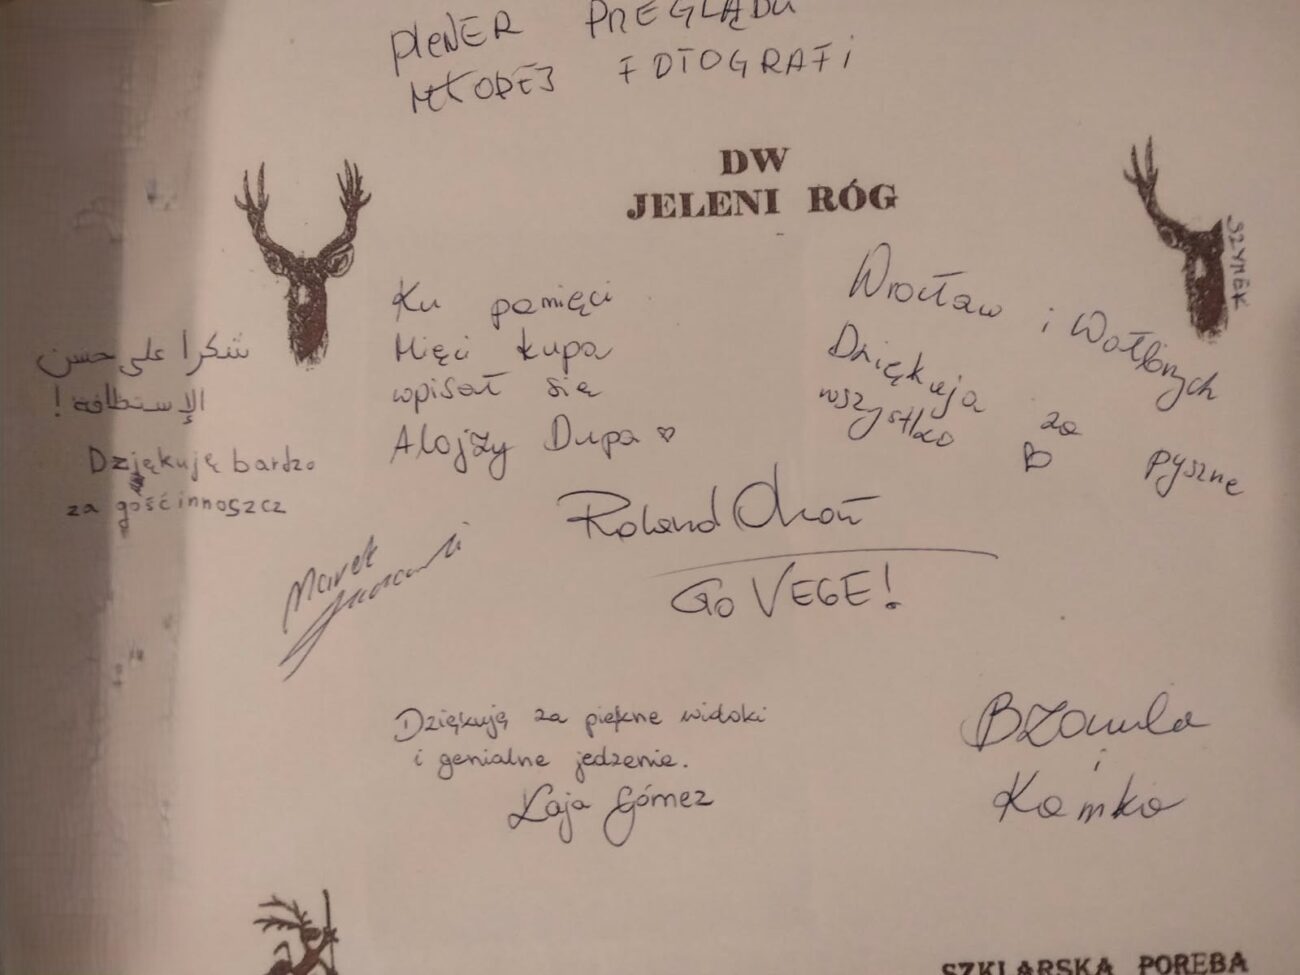 PlENER PREGLĄDU
MŁODEJ FOTOGRAFi
DW
JELENI RÓG
SZYMEK
Ku pamięci
Mięci kupa
wpisał się
Alojzy Dupa ♥
Wrocław i Wałbrzych
Dziękuja za
wszystko B pyszne
شكرا على حسن
الإستظافة !
Dziękuję bardzo
za gośćinnoszcz
Marek
Roland Okoń
Go VEGE!
Dziękuję za piękne widoki
i genialne jedzenie.
Kaja Gómez
i
Kamka
SZKLARSKA PORĘBA